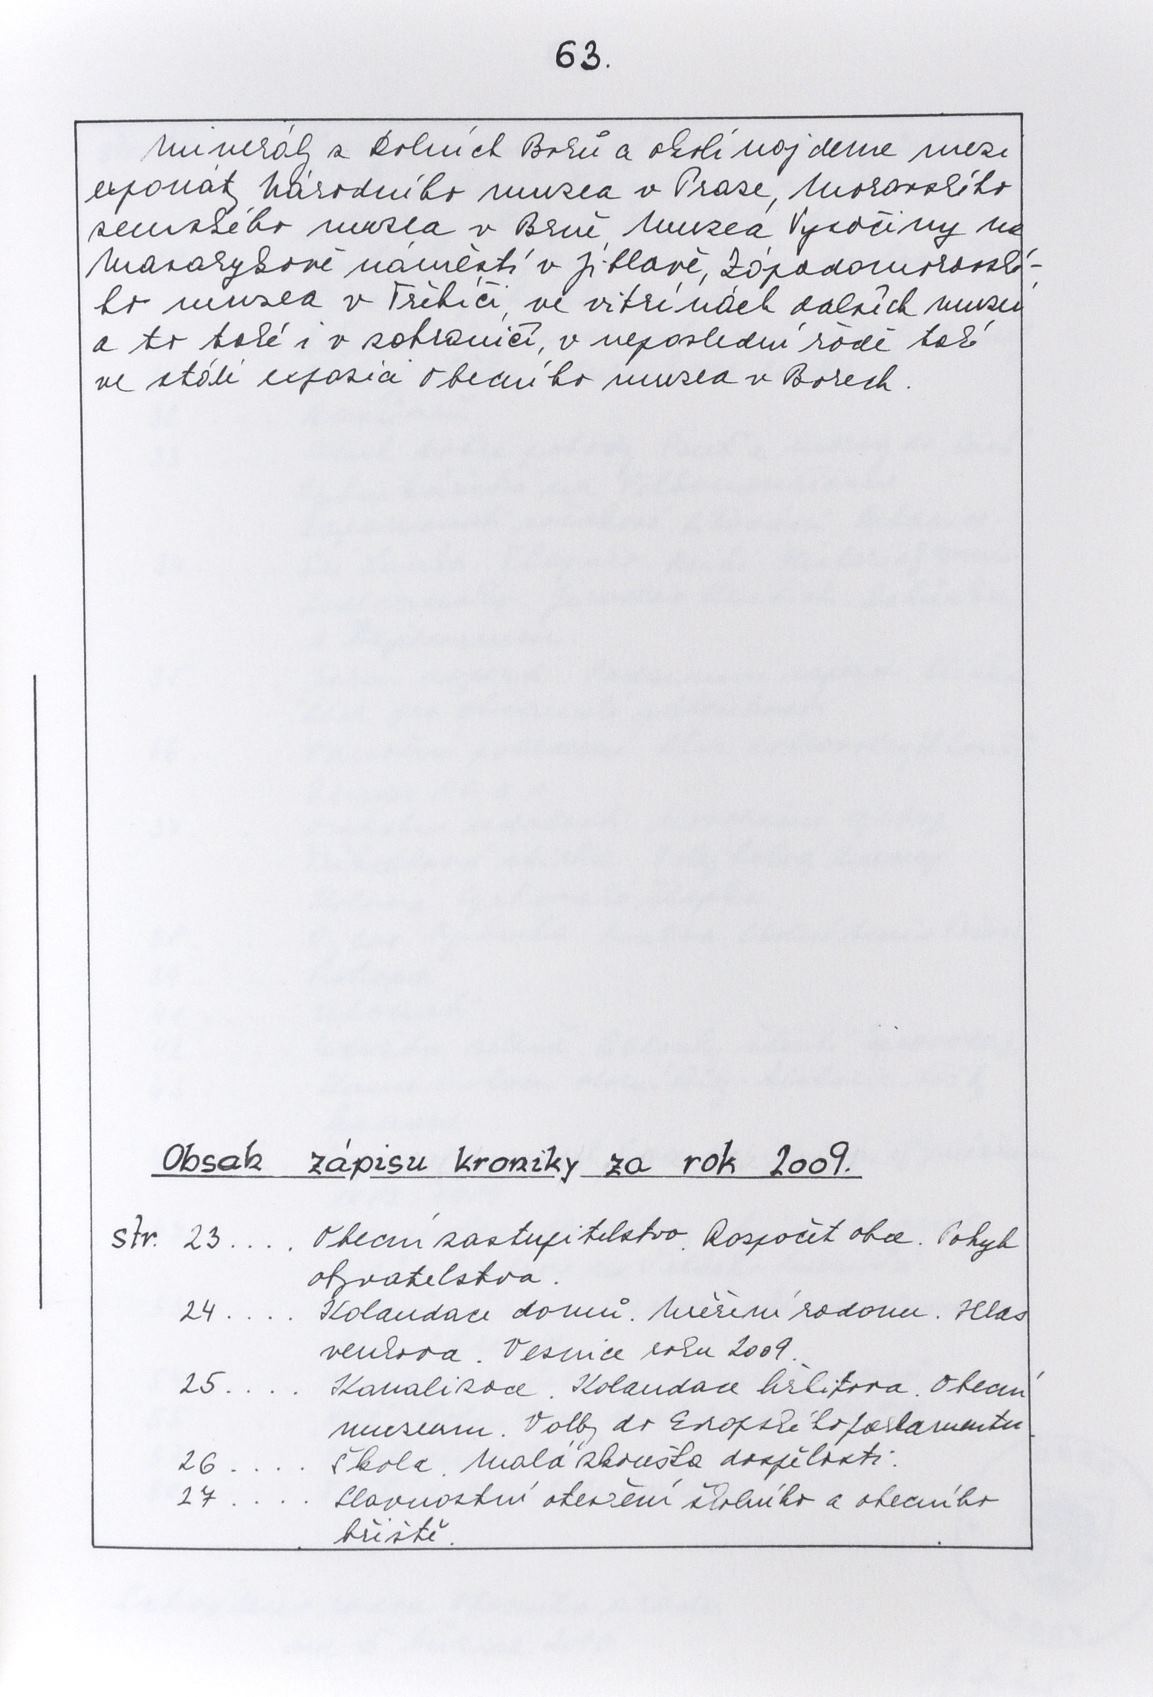 63.
Minerály z Dolních Borů a okolí najdeme mezi
exponáty Národního muzea v Praze, Moravského
zemského muzea v Brně, Muzea Vysočiny na
Masarykově náměstí v Jihlavě, Západomoravské-
ho muzea v Třebíči, ve vitrínách dalších muzeí
a to také i v zahraničí, v neposlední řadě také
ve stálé expozici Obecního muzea v Borech.
Obsah zápisu kroniky za rok 2009.
str. 23.... Obecní zastupitelstvo. Rozpočet obce. Pohyb
obyvatelstva.
24.... Kolaudace domů. Měření radonu. Hlas
venkova. Vesnice roku 2009.
25.... Kanalizace. Kolaudace hřbitova. Obecní
muzeum. Volby do Evropského parlamentu.
26.... Škola. Malá zkouška dospělosti.
27.... Slavnostní otevření školního a obecního
hřiště.